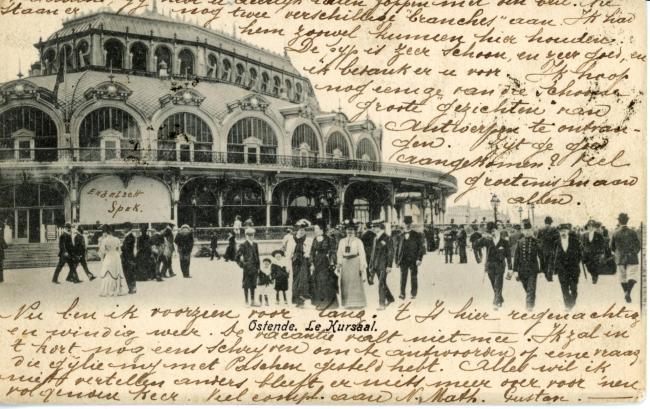 nog twee verschillige "branches" aan. Ik had
hem zoowel kunnen hier houden.
De pijp is zeer schoon, en zeer goed, en
ik bedank er u voor. Ik hoop
nog eenige van die schoone
groote gezichten van
Antwerpen te ontvan-
gen. Zijt de goed
aangekomen? Veel
groetenis aan
allen.
Engelsch
Spek.
Ostende. Le Kursaal.
Nu ben ik voorzien voor lang. 't Is hier regenachtig
en windig weer. De vacantie valt niet mee. Ik zal in
't kort nog eens schrijven om te antwoorden op eene vraag
die gijlie mij met Paschen gesteld hebt. Alles wil ik
niet vertellen anders bleeft er niets meer over voor den
volgenden keer. Veel compl. aan N. Math. Gustan.